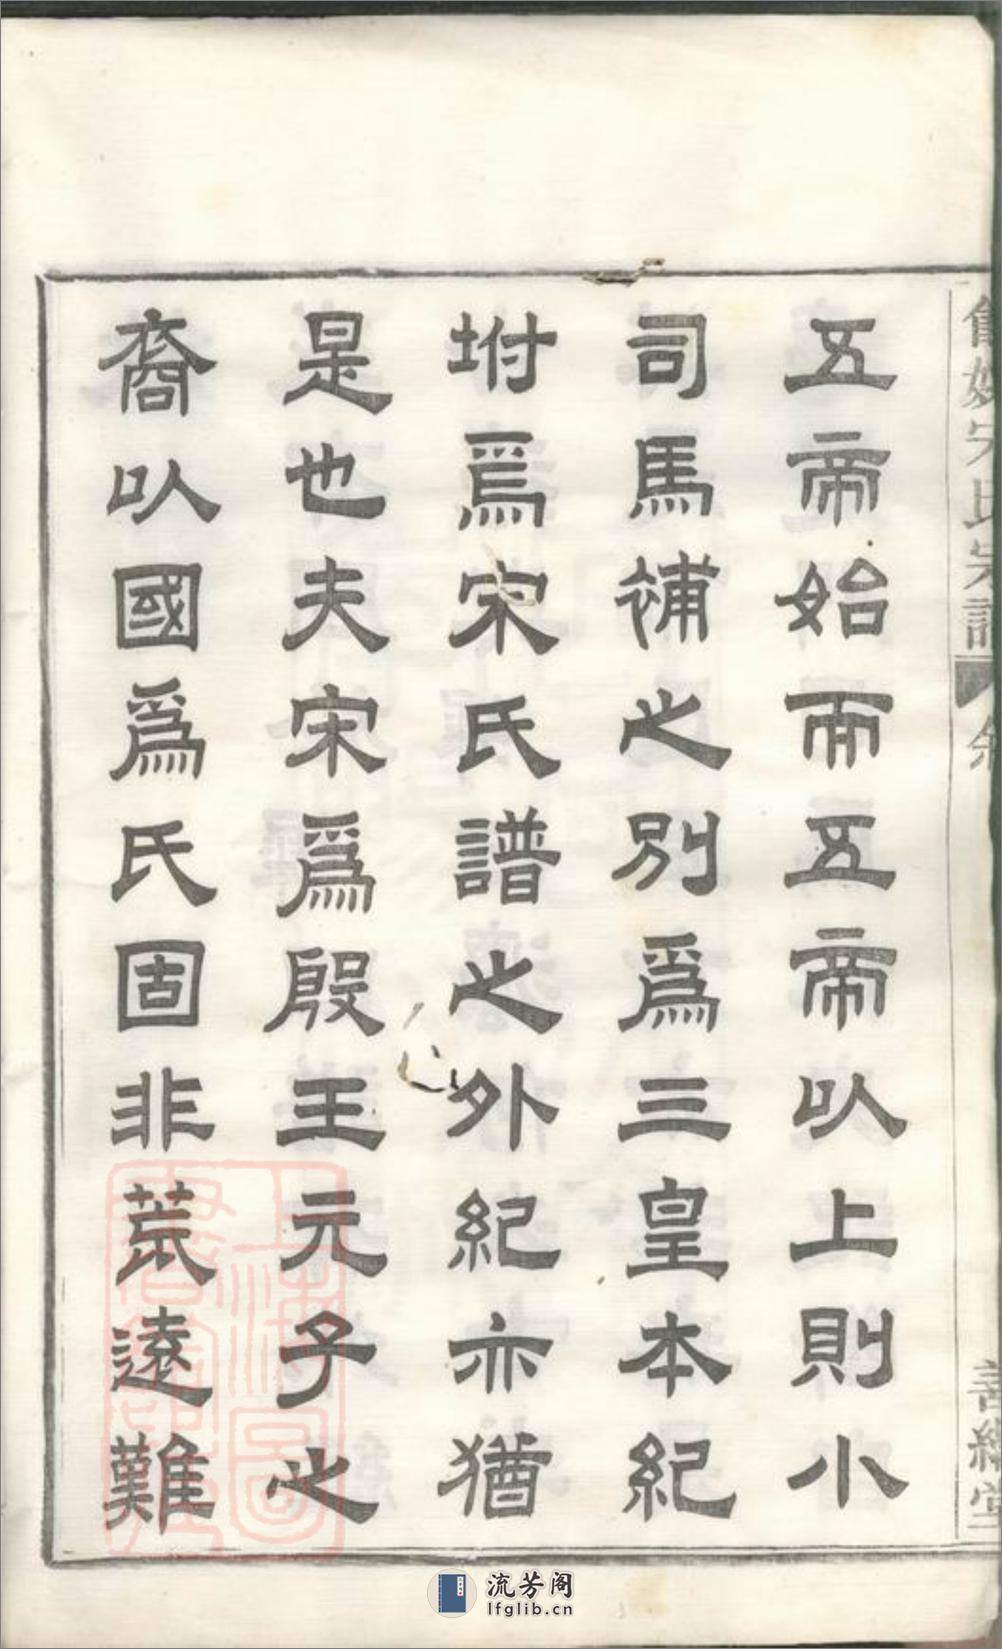 宋氏宗譜
善繼堂
五帝始而五帝以上則小
司馬補之別爲三皇本紀
坿焉宋氏譜之外紀亦猶
是也夫宋爲殷王元子之
裔以國爲氏固非荒遠難
上海圖書館藏
流芳阁
lfglib.cn